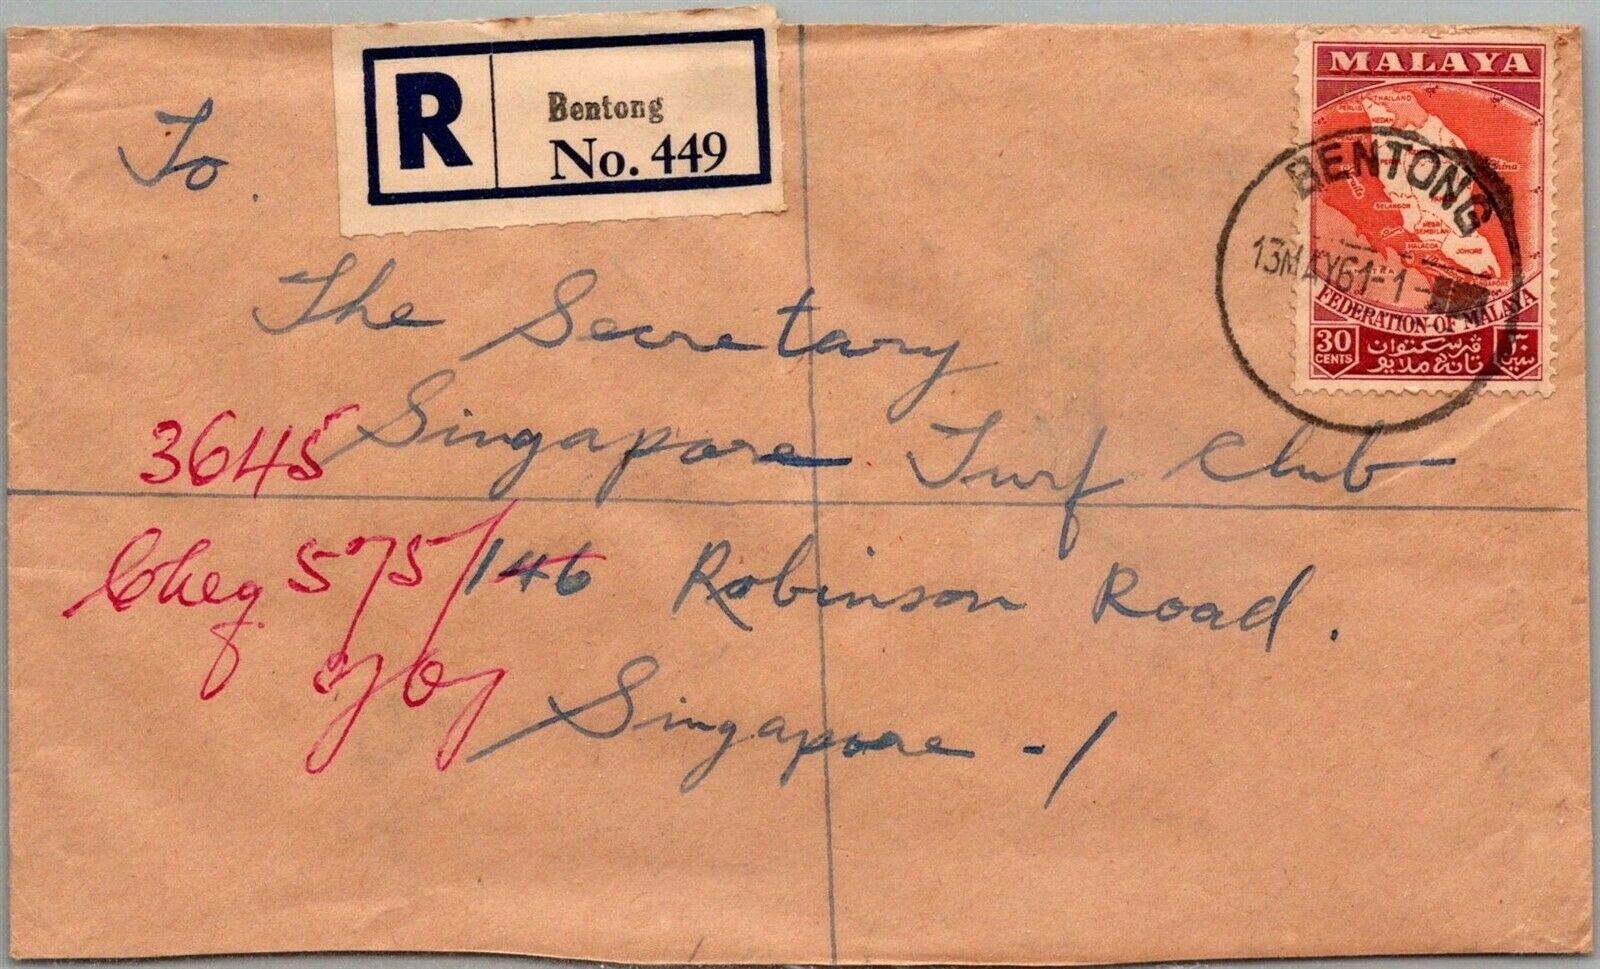 R
Bentong
No. 449
MALAYA
THAILAND
PERLIS
KEDAH
SELANGOR
NEGRI
SEMBILAN
MALACCA
JOHORE
SINGAPORE
FEDERATION OF MALAYA
30
CENTS
ڤرسكتوان
تانه ملايو
٣٠
سين
BENTONG
13MAY61-1-
To.
The Secretary
Singapore Turf Club
146 Robinson Road.
Singapore -1
3645
Cheq 575/-